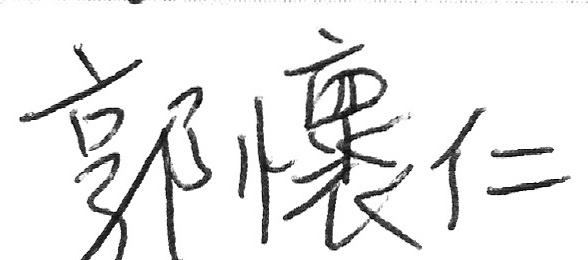 郭懷仁